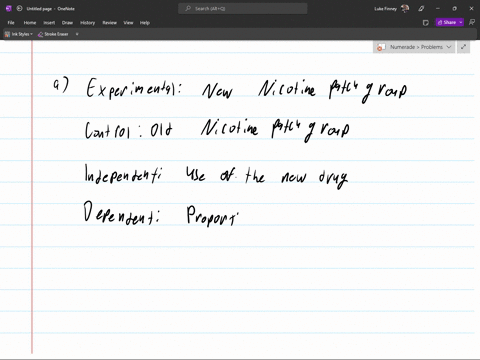 Untitled page - OneNote
Search (Alt+Q)
Luke Finney
File Home Insert Draw History Review View Help
Share
Ink Styles Stroke Eraser
Numerade > Problems
a) Experimental: New Nicotine patch group
Control: Old Nicotine patch group
Independent: Use of the new drug
Dependent: Proporti